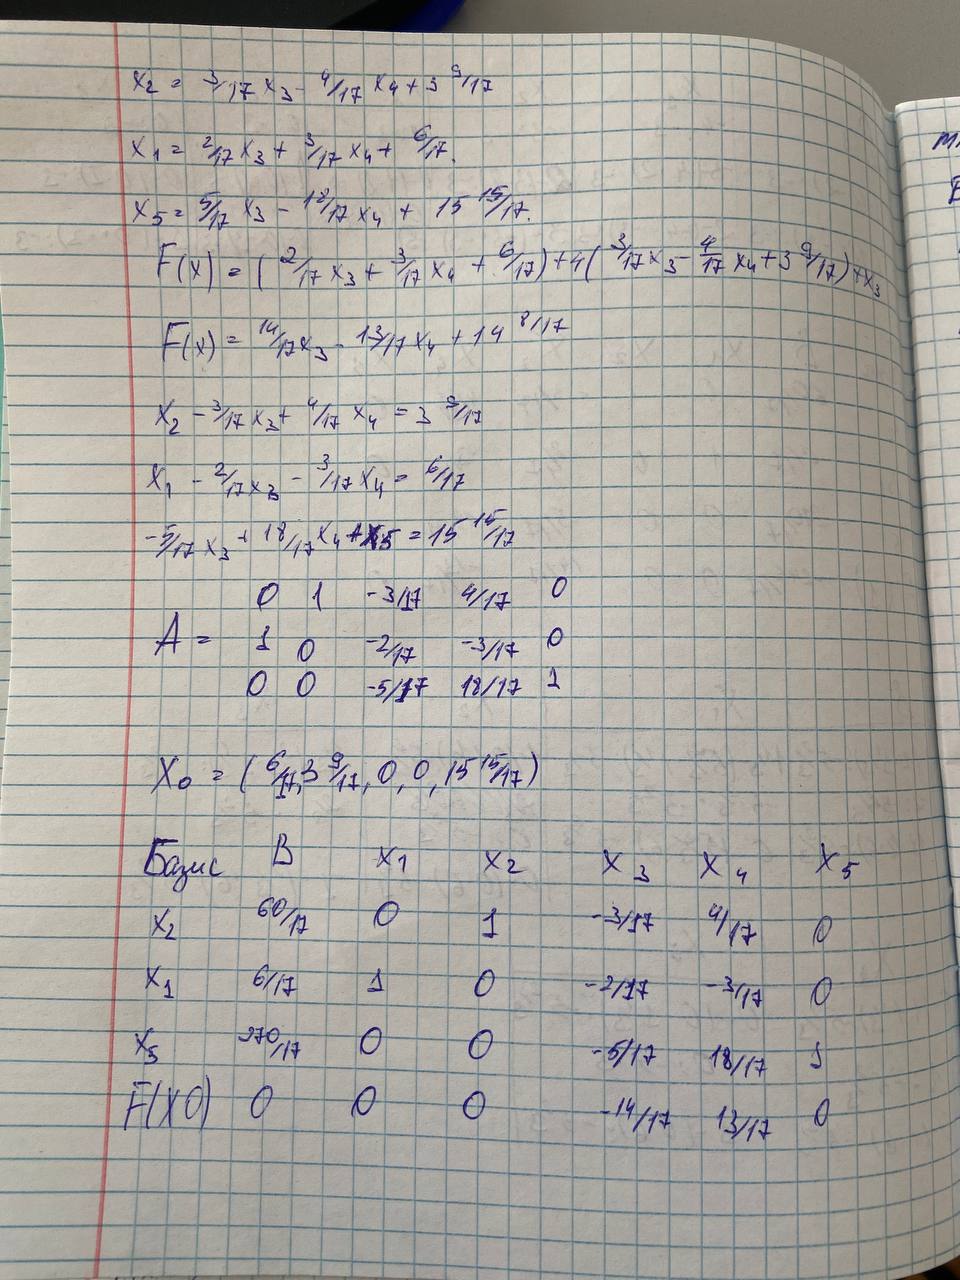 x₂ = 3/17 x₃ - 4/17 x₄ + 3 9/17
x₁ = 2/17 x₃ + 3/17 x₄ + 6/17.
x₅ = 5/17 x₃ - 18/17 x₄ + 15 15/17.
F(x) = ( 2/17 x₃ + 3/17 x₄ + 6/17) + 4( 3/17 x₃ - 4/17 x₄ + 3 9/17) + x₃
F(x) = 14/17 x₃ - 13/17 x₄ + 14 8/17
x₂ - 3/17 x₃ + 4/17 x₄ = 3 9/17
x₁ - 2/17 x₃ - 3/17 x₄ = 6/17
-5/17 x₃ + 18/17 x₄ + x₅ = 15 15/17
0 1 -3/17 4/17 0
A = 1 0 -2/17 -3/17 0
0 0 -5/17 18/17 1
X₀ = ( 6/17, 3 9/17, 0, 0, 15 15/17)
Базис B x₁ x₂ x₃ x₄ x₅
x₂ 60/17 0 1 -3/17 4/17 0
x₁ 6/17 1 0 -2/17 -3/17 0
x₅ 270/17 0 0 -5/17 18/17 1
F(X0) 0 0 0 -14/17 13/17 0